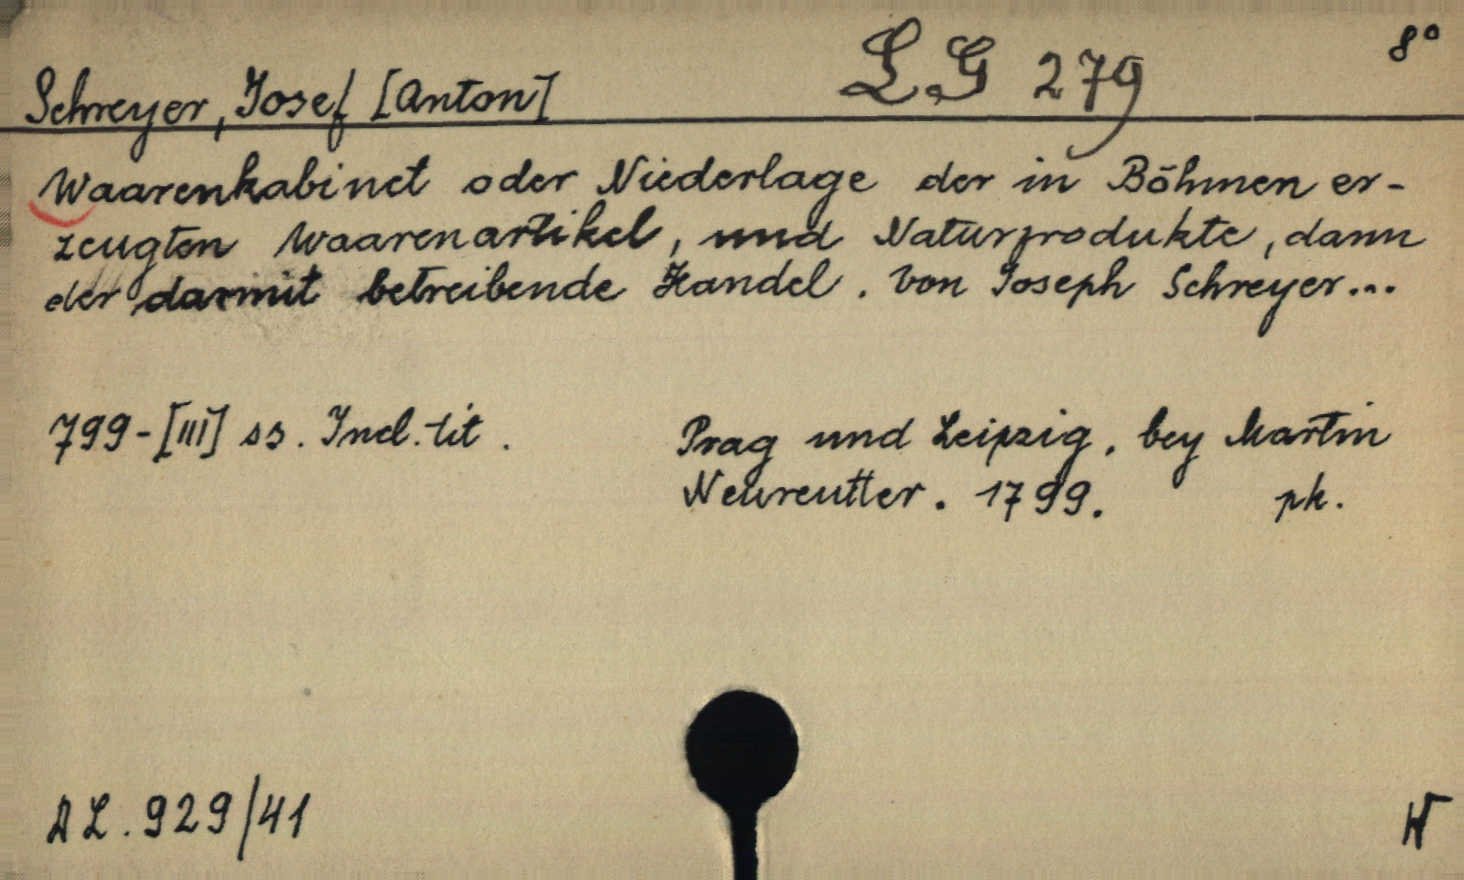 LG 279 8°
Schreyer, Josef [Anton]
Waarenkabinet oder Niederlage der in Böhmen er-
zeugten Waarenartikel, und Naturprodukte, dann
der darmit betreibende Handel. Von Joseph Schreyer...
799-[III] ss. Incl. tit. Prag und Leipzig, bey Martin
Neureutter. 1799. pk.
AL. 929/41